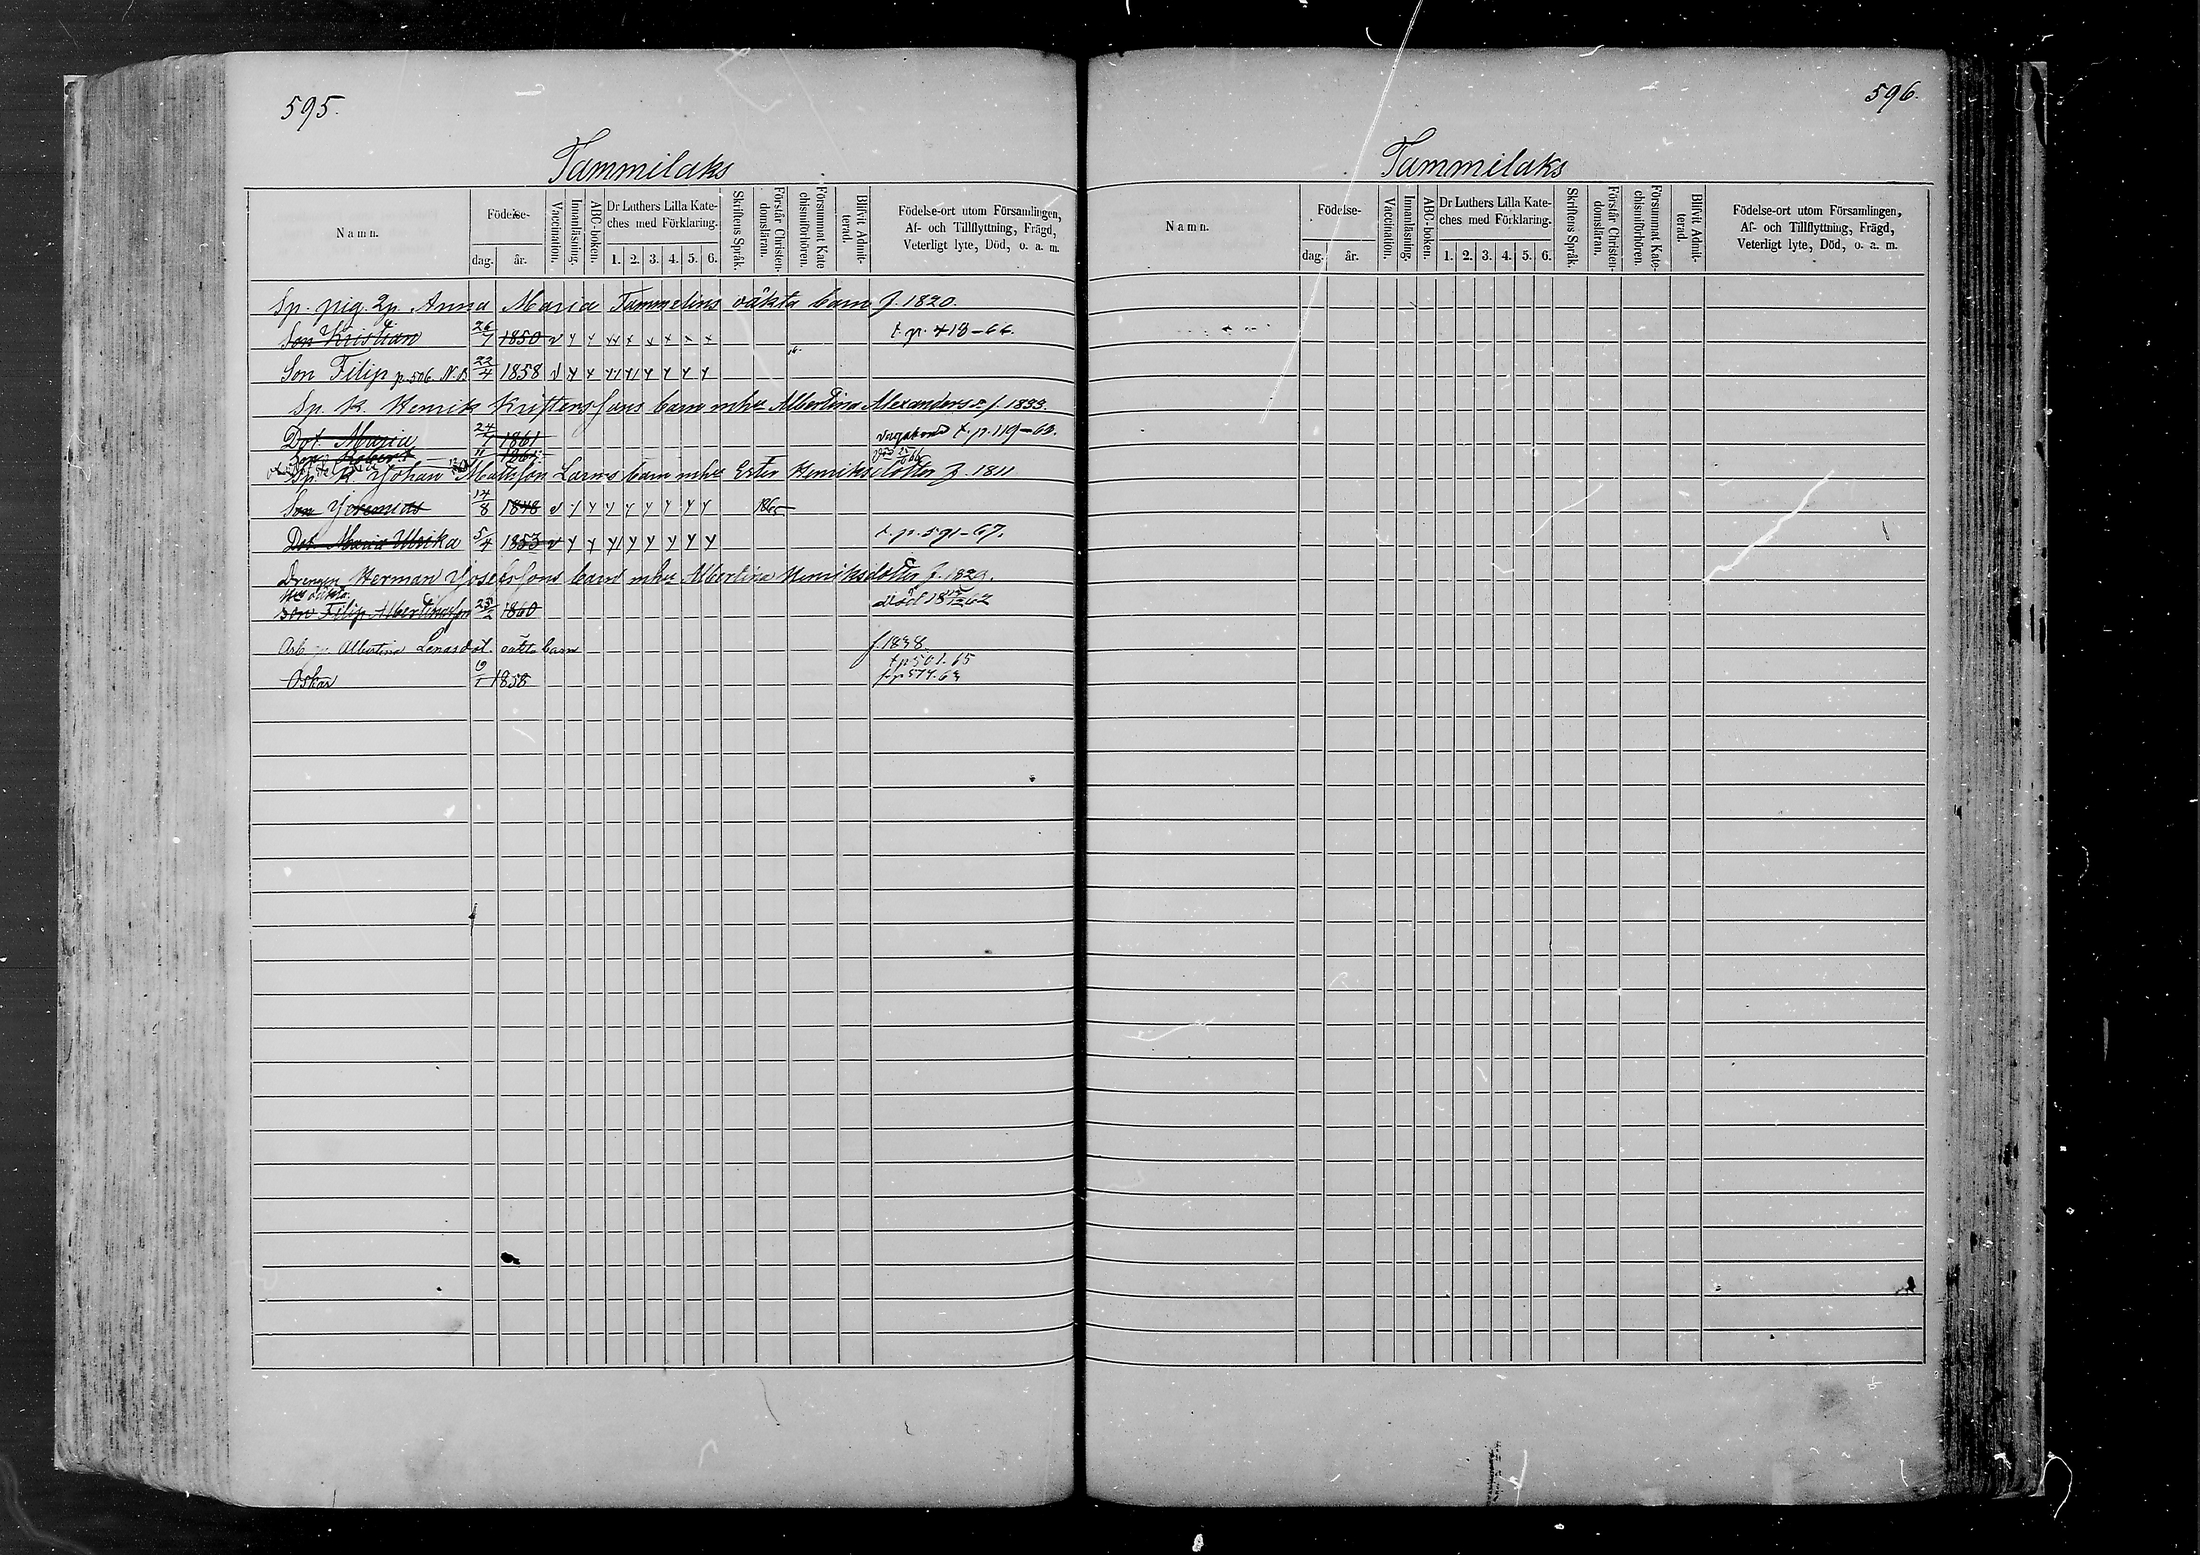 595.
Tammilaks
Namn.
Födelse-
dag.
år.
Vaccination.
Innanläsning.
ABC-boken.
Dr Luthers Lilla Kate-
ches med Förklaring.
1. 2. 3. 4. 5. 6.
Skriftens Språk.
Förstår Christen-
domsläran.
Försummat Kate
chismiförhören.
Blifvit Admit-
terad.
Födelse-ort utom Församlingen,
Af- och Tillflyttning, Frägd,
Veterligt lyte, Död, o. a. m.
Sp. pig. Anna Maria Tammelins oäkta barn f. 1820.
Son Kristian 26/7 1850 v t. p. 418-66.
Son Filip p. 506. N.B 22/4 1858 v
Sp. K. Henrik Kristerssons barn mhu Albertina Alexanders f. 1833.
Dot. Maria 24/7 1861 t. p. 119-63.
Son Robert
Sp. K. Johan Mattsson Larms barn mhu Ester Henriksdotter f. 1811
Son Jeremias 14/8 1848 v
Dot. Maria Ulrika 5/4 1853 v t. p. 591-67.
Drengen Herman Josefssons barn mhu Albertina Henriksdotter
oäkta
Son Filip Albertinasson 1860 död
Albertina Lenasdot. oäkta barn f. 1838.
t p 501. 65
Oskar 1858 fr p 577. 63
596.
Tammilaks
Namn.
Födelse-
dag.
år.
Vaccination.
Innanläsning.
ABC-boken.
Dr Luthers Lilla Kate-
ches med Förklaring.
1. 2. 3. 4. 5. 6.
Skriftens Språk.
Förstår Christen-
domsläran.
Försummat Kate-
chismiförhören.
Blifvit Admit-
terad.
Födelse-ort utom Församlingen,
Af- och Tillflyttning, Frägd,
Veterligt lyte, Död, o. a. m.